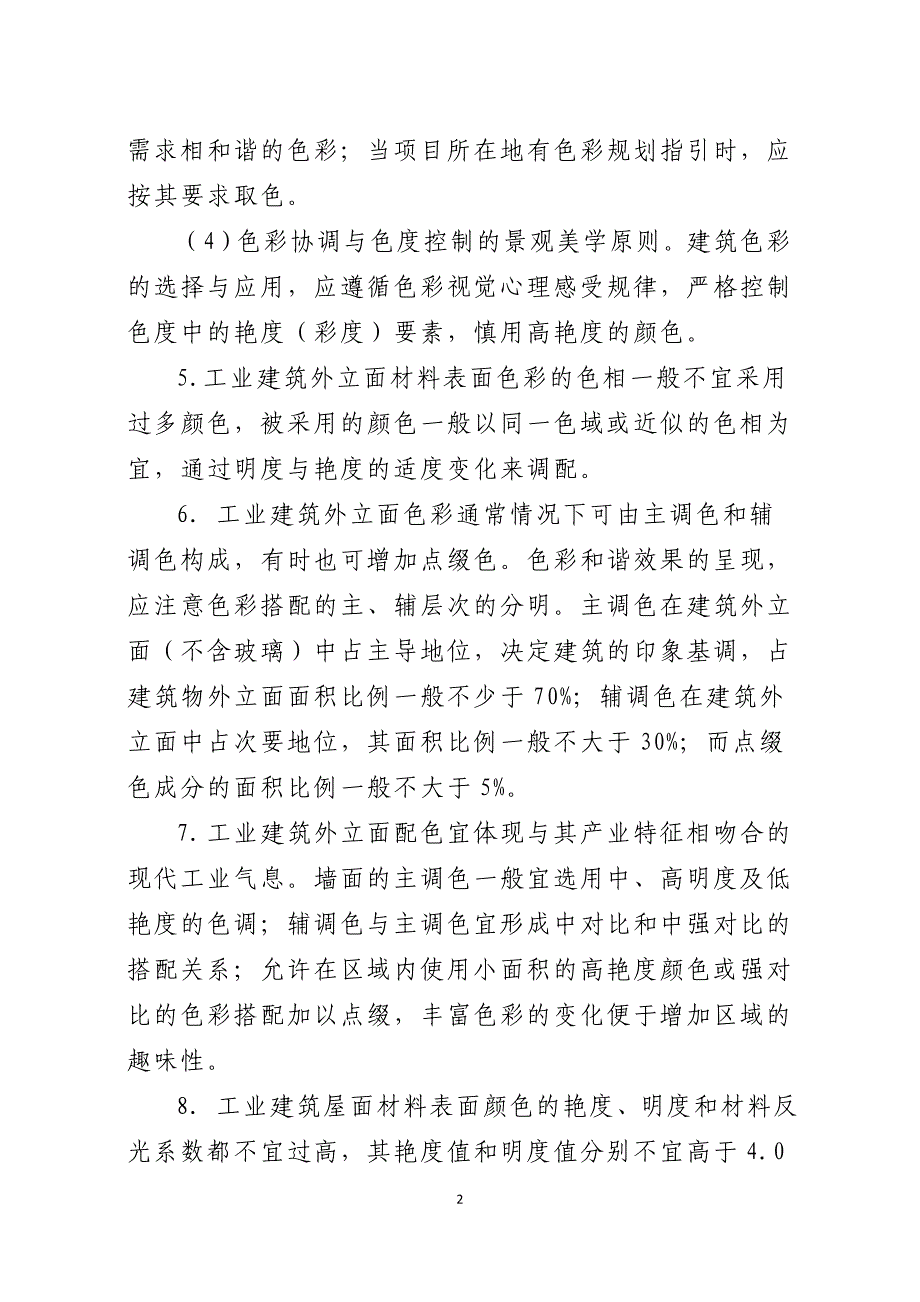 需求相和谐的色彩；当项目所在地有色彩规划指引时，应
按其要求取色。
（4)色彩协调与色度控制的景观美学原则。建筑色彩
的选择与应用，应遵循色彩视觉心理感受规律，严格控制
色度中的艳度（彩度）要素，慎用高艳度的颜色。
5.工业建筑外立面材料表面色彩的色相一般不宜采用
过多颜色，被采用的颜色一般以同一色域或近似的色相为
宜，通过明度与艳度的适度变化来调配。
6. 工业建筑外立面色彩通常情况下可由主调色和辅
调色构成，有时也可增加点缀色。色彩和谐效果的呈现，
应注意色彩搭配的主、辅层次的分明。主调色在建筑外立
面（不含玻璃）中占主导地位，决定建筑的印象基调，占
建筑物外立面面积比例一般不少于 70%；辅调色在建筑外
立面中占次要地位，其面积比例一般不大于 30%；而点缀
色成分的面积比例一般不大于 5%。
7.工业建筑外立面配色宜体现与其产业特征相吻合的
现代工业气息。墙面的主调色一般宜选用中、高明度及低
艳度的色调；辅调色与主调色宜形成中对比和中强对比的
搭配关系；允许在区域内使用小面积的高艳度颜色或强对
比的色彩搭配加以点缀，丰富色彩的变化便于增加区域的
趣味性。
8. 工业建筑屋面材料表面颜色的艳度、明度和材料反
光系数都不宜过高，其艳度值和明度值分别不宜高于 4.0
2